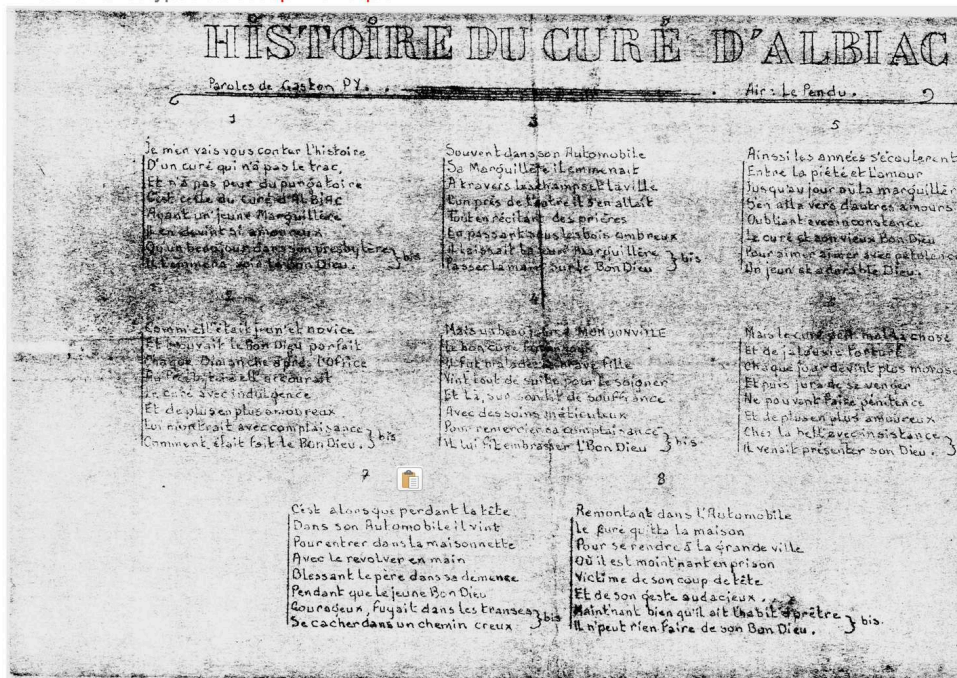 HISTOIRE DU CURÉ D'ALBIAC
Paroles de Gaston PY. Air : Le Pendu.
1
Je m'en vais vous conter l'histoire
D'un curé qui n'a pas le trac,
Et n'a pas peur du purgatoire
C'est celle du Curé d'ALBIAC
Ayant un' jeune Marguillère
Il en devint si amoureux
Qu'un beau jour dans son presbytère
Il l'emmena voir le Bon Dieu. } bis
2
Comm' ell' était jeun' et novice
Et trouvait le Bon Dieu parfait
Chaque Dimanche après l'Office
Au Presbytère ell' accourait
Le curé avec indulgence
Et de plus en plus amoureux
Lui montrait avec complaisance
Comment était fait le Bon Dieu. } bis
3
Souvent dans son Automobile
Sa Marguillère il emmenait
A travers les champs et la ville
L'un près de l'autre il s'en allait
Tout en récitant des prières
En passant sous les bois ombreux
Il laissait sa Marguillère
Passer la main sur le Bon Dieu } bis
4
Mais un beau jour à MONDONVILLE
Le bon curé
Il fut malade brave fille
Vint tout de suite pour le soigner
Et là, sur son lit de souffrance
Avec des soins méticuleux
Pour remercier sa complaisance
Il lui fit embrasser l'Bon Dieu } bis.
5
Ainssi les années s'écoulèrent
Entre la piété et l'amour
Jusqu'au jour où la marguillèr
S'en alla vers d'autres amours
Oubliant avec inconstance
Le curé et son vieux Bon Dieu
Pour aimer avec pétulance
Un jeun' et adorable Dieu.
6
Mais le curé prit mal la chose
Et de jalousie torturé
Chaque jour devint plus morose
Et puis jura de se venger
Ne pouvant faire pénitence
Et de plus en plus amoureux
Chez la bell' avec insistance
Il venait présenter son Dieu. }
7
C'est alors que perdant la tête
Dans son Automobile il vint
Pour entrer dans la maisonnette
Avec le revolver en main
Blessant le père dans sa demence
Pendant que le jeune Bon Dieu
Courageux, fuyait dans les transes
Se cacher dans un chemin creux } bis
8
Remontant dans l'Automobile
Le Curé quitta la maison
Pour se rendre à la grande ville
Où il est maint'nant en prison
Victime de son coup de tête
Et de son geste audacieux.
Maint'nant bien qu'il ait l'habit d'prêtre
Il n'peut rien faire de son Bon Dieu. } bis.